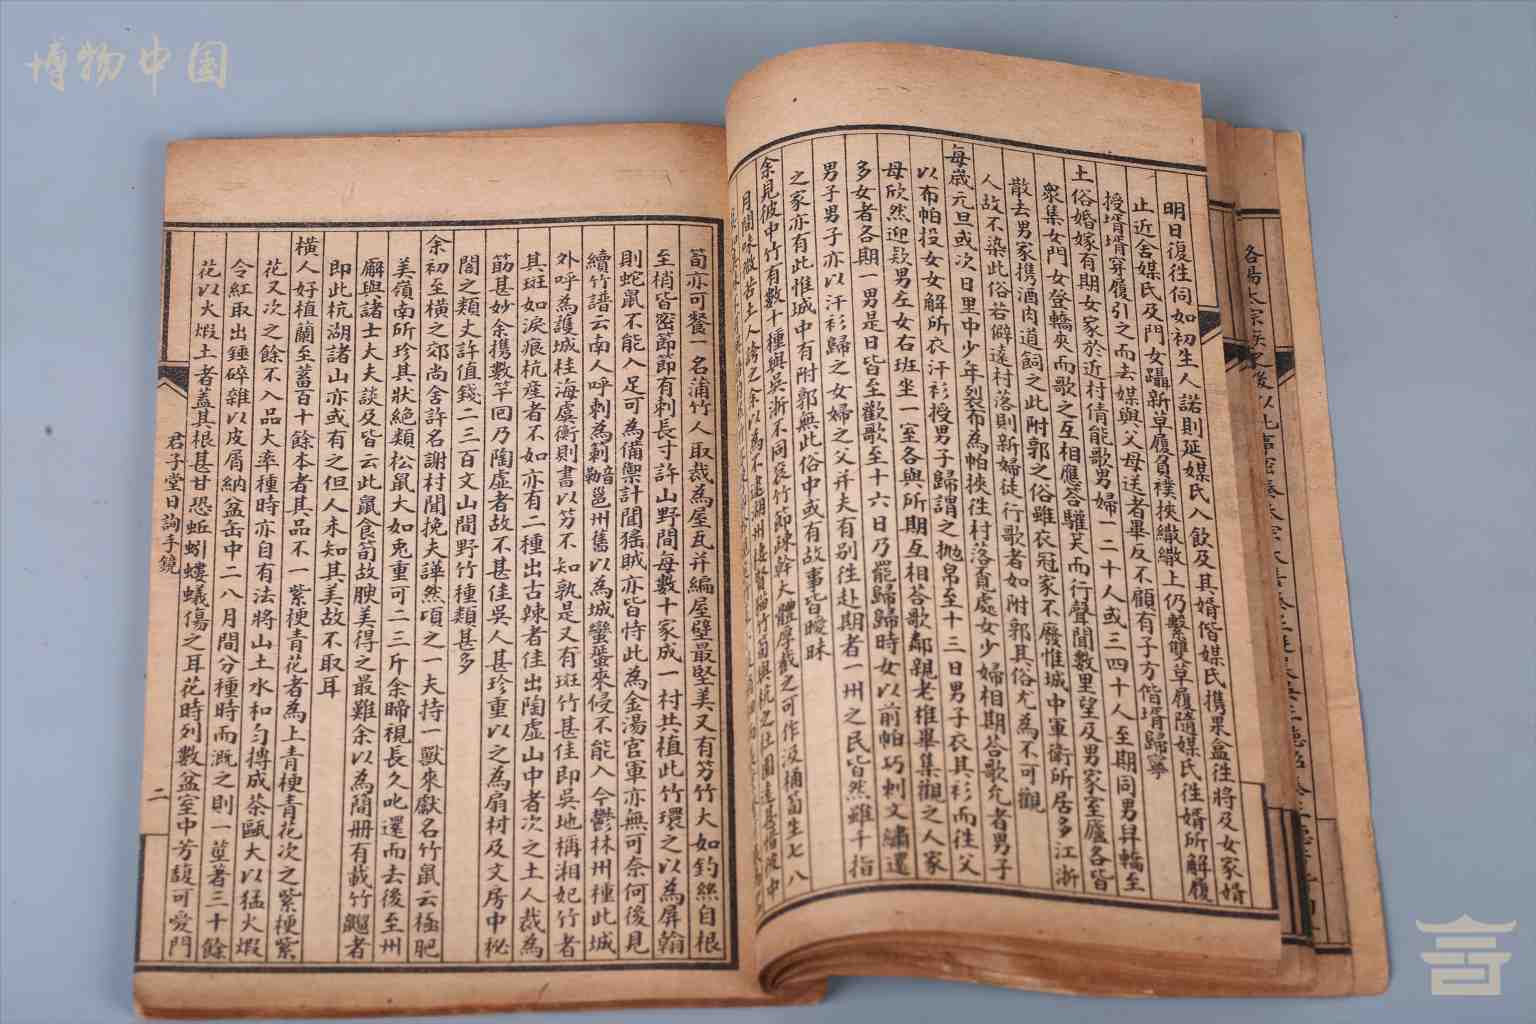 博物中国
明日復徃伺如初生人諾則延媒氏入飲及其婿偕媒氏携果盒徃將及女家婿
止近舍媒氏及門女躡新草履負襆挾繖繖上仍繫雙草履隨媒氏徃婿所解履
授婿婿穿履引之而去媒與父母送者畢反不顧有子方偕婿歸寧
土俗婚嫁有期女家於近村倩能歌男婦一二十人或三四十人至期同男舁轎至
衆集女門女登轎夾而歌之互相應答驩笑而行聲聞數里望及男家室廬各皆
散去男家携酒肉道飼之此附郭之俗雖衣冠家不廢惟城中軍衛所居多江浙
人故不染此俗若僻遠村落則新婦徒行歌者如附郭其俗尤為不可觀
每歲元旦或次日里中少年裂布為帕挾徃村落覔處女少婦相期答歌允者男子
以布帕投女女解所衣汗衫授男子歸謂之抛帛至十三日男子衣其衫而徃父
母欣然迎欵男左女右班坐一室各與所期互相答歌鄰親老稚畢集觀之人家
多女者各期一男是日皆至歡歌至十六日乃罷歸歸時女以前帕巧刺文繡還
男子男子亦以汗衫歸之女婦之父并夫有别徃赴期者一州之民皆然雖千指
之家亦有此惟城中有附郭無此俗中或有故事皆曖昧
余見彼中竹有數十種與吳浙不同䈀竹節疎幹大體厚截之可作汲桶筍生七八
月間味微苦土人誇之余以為不逮湖州
筍亦可餐一名蒲竹人取裁為屋瓦并編屋壁最堅美又有竻竹大如釣絲自根
至梢皆密節節有刺長寸許山野間每數十家成一村共植此竹環之以為屏翰
則蛇鼠不能入足可為備禦計聞猺賊亦皆恃此為金湯官軍亦無可奈何後見
續竹譜云南人呼刺為䇲勒音邕州舊以為城蠻蜑來侵不能入今鬱林州種此城
外呼為護城桂海虞衡則書以竻不知孰是又有斑竹甚佳即吳地稱湘妃竹者
其斑如淚痕杭産者不如亦有二種出古辣者佳出陶虛山中者次之土人裁為
筯甚妙余携數竿回乃陶虛者故不甚佳吳人甚珍重以之為扇材及文房中秘
閣之類丈許值錢二三百文山間野竹種類甚多
余初至橫之郊尚舍許名謝村聞挽夫譁然頃之一夫持一獸來獻名竹鼠云極肥
美嶺南所珍其狀絶類松鼠大如兎重可二三斤余睇視長久叱還而去後至州
廨與諸士大夫談及皆云此鼠食筍故腴美得之最難余以為簡冊有載竹䶉者
即此杭湖諸山亦或有之但人未知其美故不取耳
橫人好植蘭至蓄百十餘本者其品不一紫梗青花者為上青梗青花次之紫梗紫
花又次之餘不入品大率種時亦自有法將山土水和匀搏成茶甌大以猛火煅
令紅取出錘碎雜以皮屑納盆缶中二八月間分種時而溉之則一莖著三十餘
花以火煅土者蓋其根甚甘恐蚯蚓螻蟻傷之耳花時列數盆室中芳馥可愛門
君子堂日詢手鏡
二